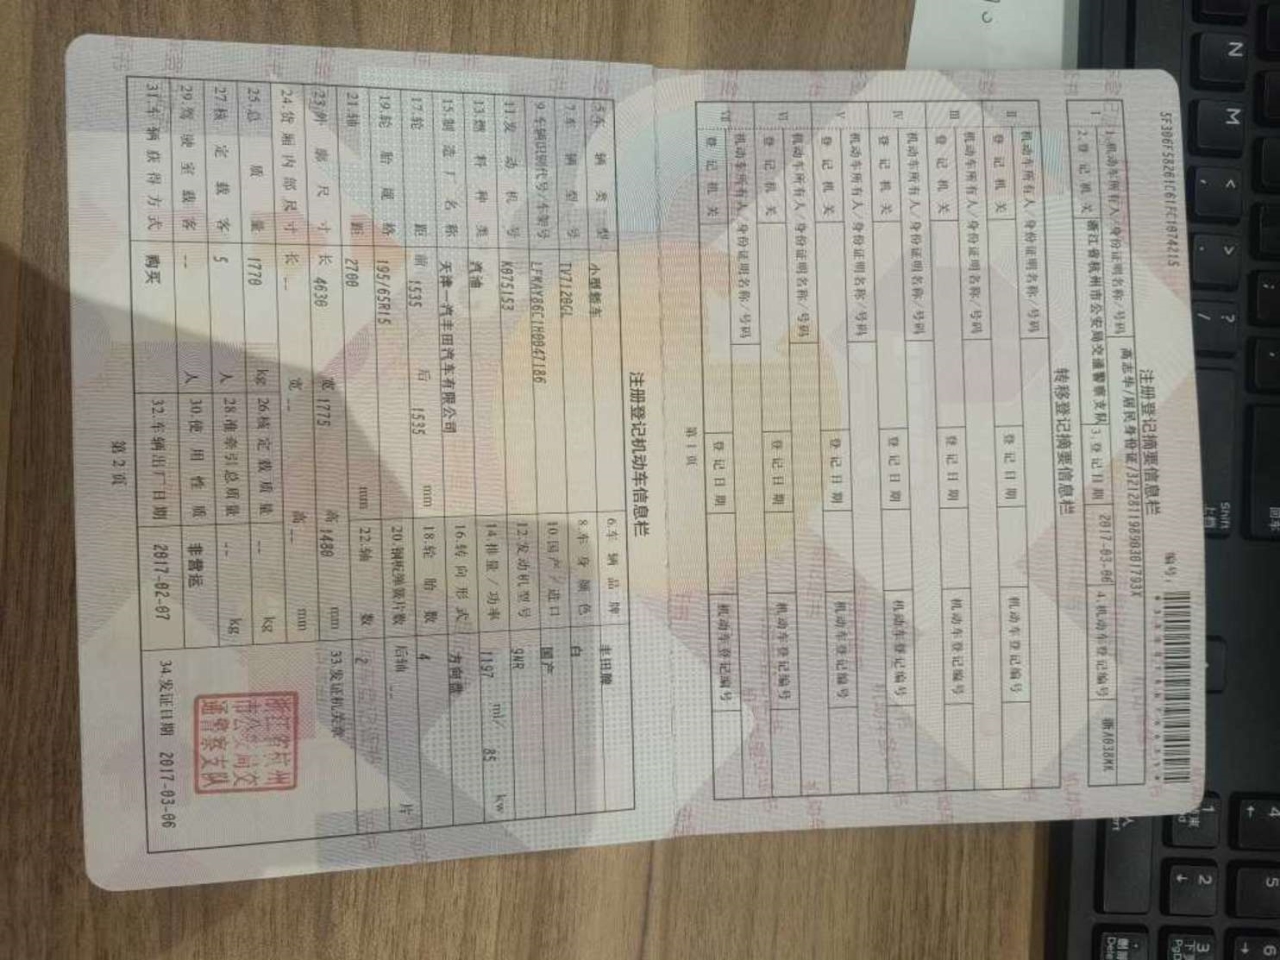 5F306F58201C61FC1074215
注册登记摘要信息栏
编号:
1.机动车所有人/身份证明名称/号码 高志华/居民身份证/32128119890301793X
I 2.登记机关 浙江省杭州市公安局交通警察支队 3.登记日期 2017-03-06 4.机动车登记编号 浙A038MK
转移登记摘要信息栏
II 机动车所有人/身份证明名称/号码
登记机关 登记日期 机动车登记编号
III 机动车所有人/身份证明名称/号码
登记机关 登记日期 机动车登记编号
IV 机动车所有人/身份证明名称/号码
登记机关 登记日期 机动车登记编号
V 机动车所有人/身份证明名称/号码
登记机关 登记日期 机动车登记编号
VI 机动车所有人/身份证明名称/号码
登记机关 登记日期 机动车登记编号
VII 机动车所有人/身份证明名称/号码
登记机关 登记日期 机动车登记编号
第1页
注册登记机动车信息栏
5.车辆类型 小型轿车 6.车辆品牌 丰田牌
7.车辆型号 TV7120GL 8.车身颜色 白
9.车辆识别代号/车架号 LFMAY86C1H0047186 10.国产/进口 国产
11.发动机号 K075153 12.发动机型号 9NR
13.燃料种类 汽油 14.排量/功率 1197 ml/ 85 kw
15.制造厂名称 天津一汽丰田汽车有限公司 16.转向形式 方向盘
17.轮距 前 1535 后 1535 mm 18.轮胎数 4
19.轮胎规格 195/65R15 20.钢板弹簧片数 后轴 -- 片
21.轴距 2700 mm 22.轴数 2
23.外廓尺寸 长 4630 宽 1775 高 1480 mm 33.发证机关章
24.货厢内部尺寸 长 -- 宽 -- 高 -- mm
25.总质量 1770 kg 26.核定载质量 -- kg
27.核定载客 5 人 28.准牵引总质量 -- kg
29.驾驶室载客 -- 人 30.使用性质 非营运
31.车辆获得方式 购买 32.车辆出厂日期 2017-02-07 34.发证日期 2017-03-06
浙江省杭州
市公安局交
通警察支队
第2页